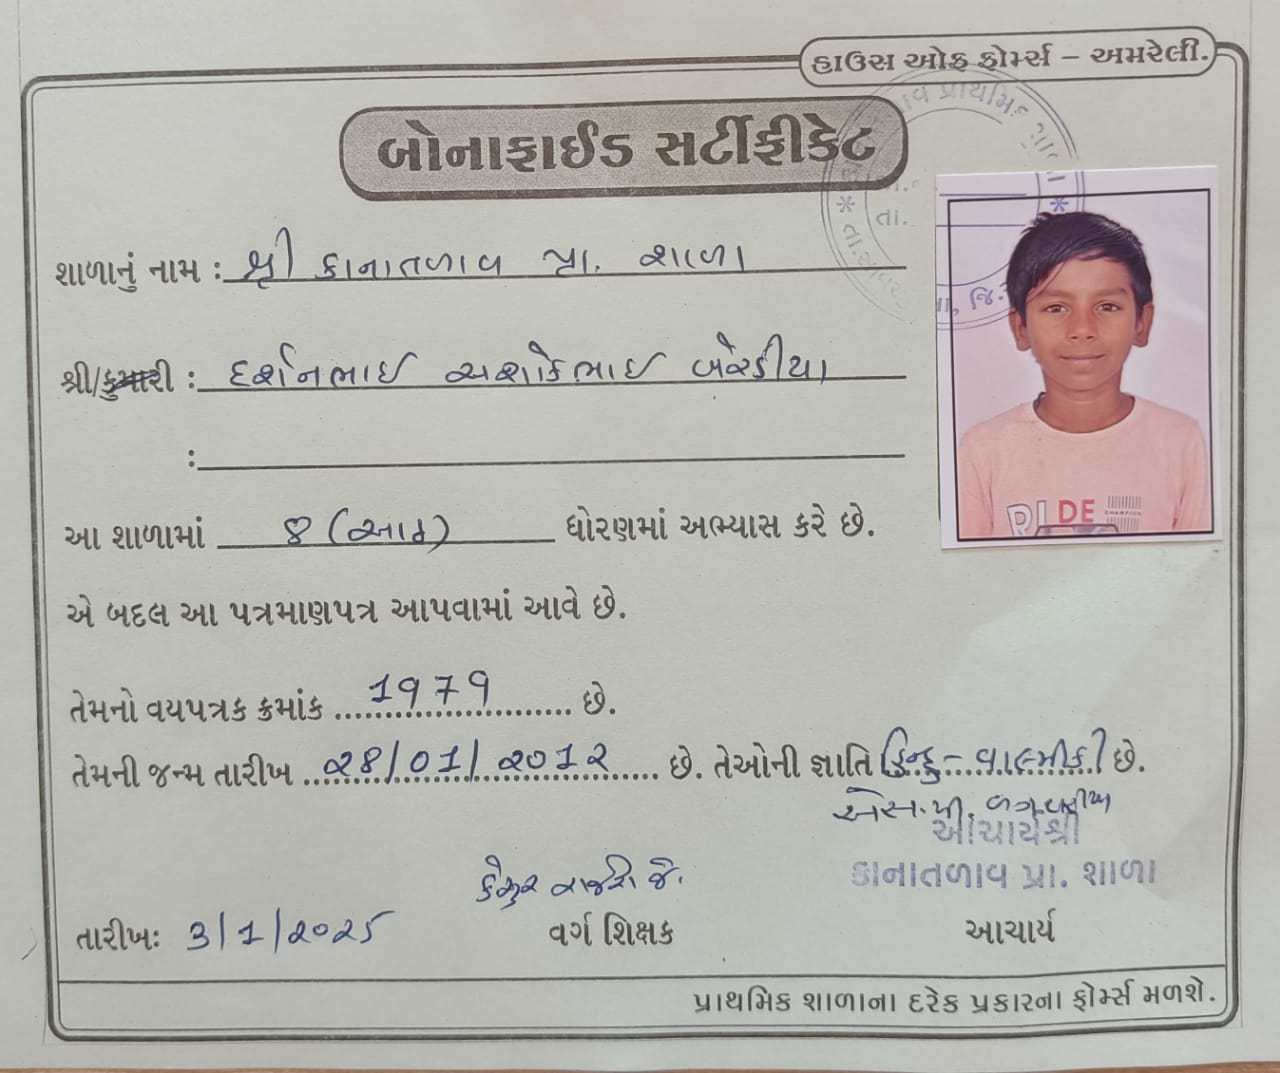 હાઉસ ઓફ ફોર્મ્સ – અમરેલી.
બોનાફાઈડ સર્ટીફીકેટ
શાળાનું નામ : શ્રી કાનાતળાવ પ્રા. શાળા
શ્રી/કુમારી : દર્શનભાઈ અશોકભાઈ બેરડીયા
:
આ શાળામાં ૪ (આઠ) ધોરણમાં અભ્યાસ કરે છે.
એ બદલ આ પત્રમાણપત્ર આપવામાં આવે છે.
તેમનો વયપત્રક ક્રમાંક 1979 છે.
તેમની જન્મ તારીખ ૨8/01/૨0૧૨ છે. તેઓની જ્ઞાતિ હિન્દુ - વાલ્મીકી છે.
એસ.પી.
આચાર્યશ્રી
કાનાતળાવ પ્રા. શાળા
તારીખઃ 3/1/૨0૨5 વર્ગ શિક્ષક આચાર્ય
પ્રાથમિક શાળાના દરેક પ્રકારના ફોર્મ્સ મળશે.
PRIDE
CHAMPION